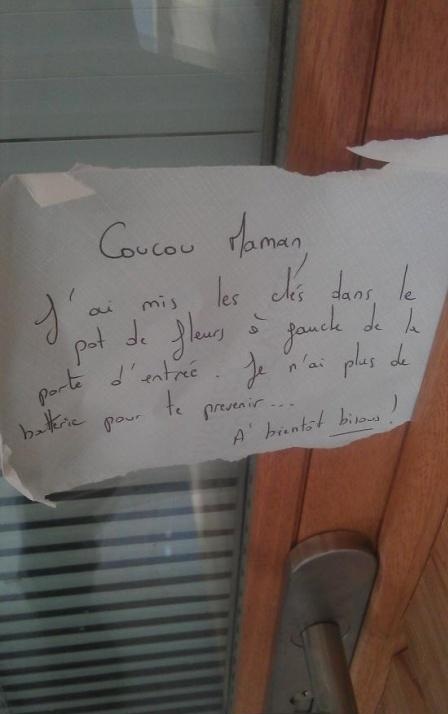 Coucou Maman
J'ai mis les clés dans le
pot de fleurs à gauche de la
porte d'entrée. Je n'ai plus de
batterie pour te prevenir...
A' bientôt bisous !